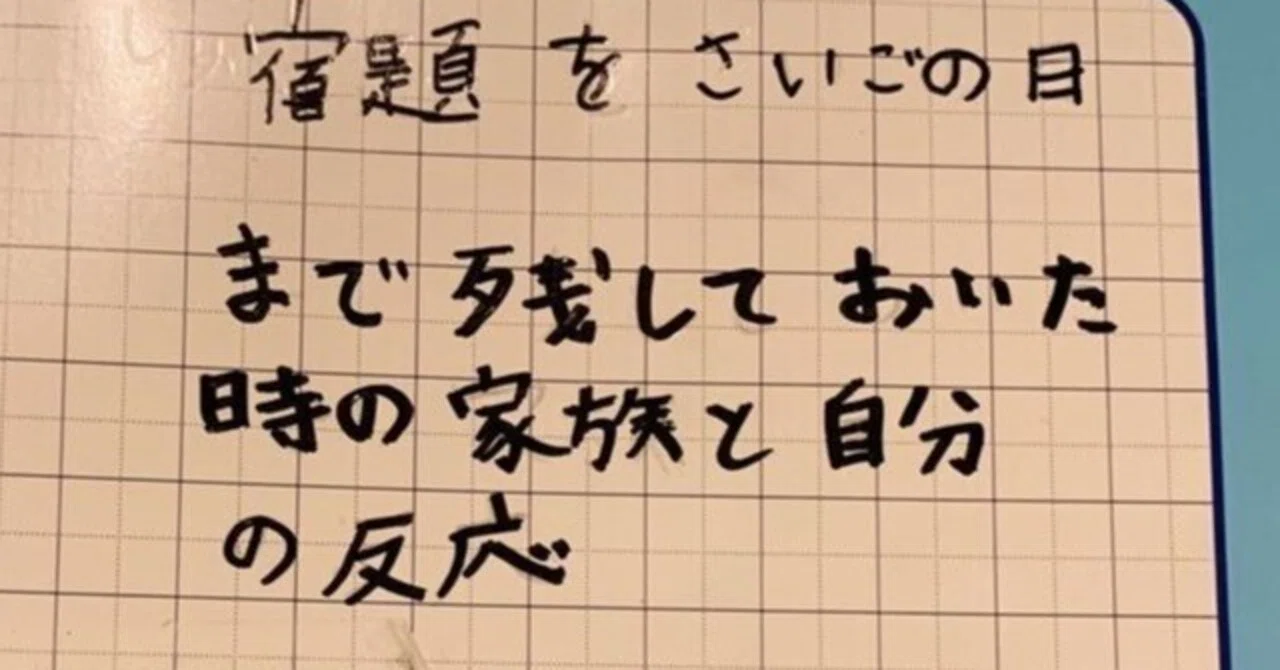 宿題をさいごの日
まで残しておいた
時の家族と自分
の反応